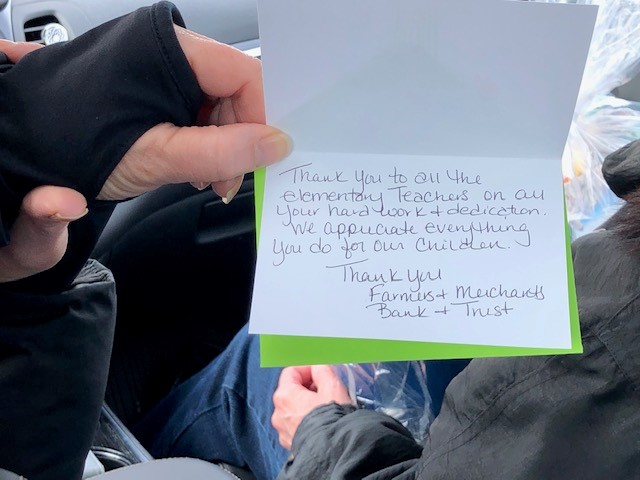 Thank you to all the
elementary Teachers on all
your hard work + dedication.
We appriciate everything
you do for our Children.
Thank you
Farmers + Merchants
Bank + Trust